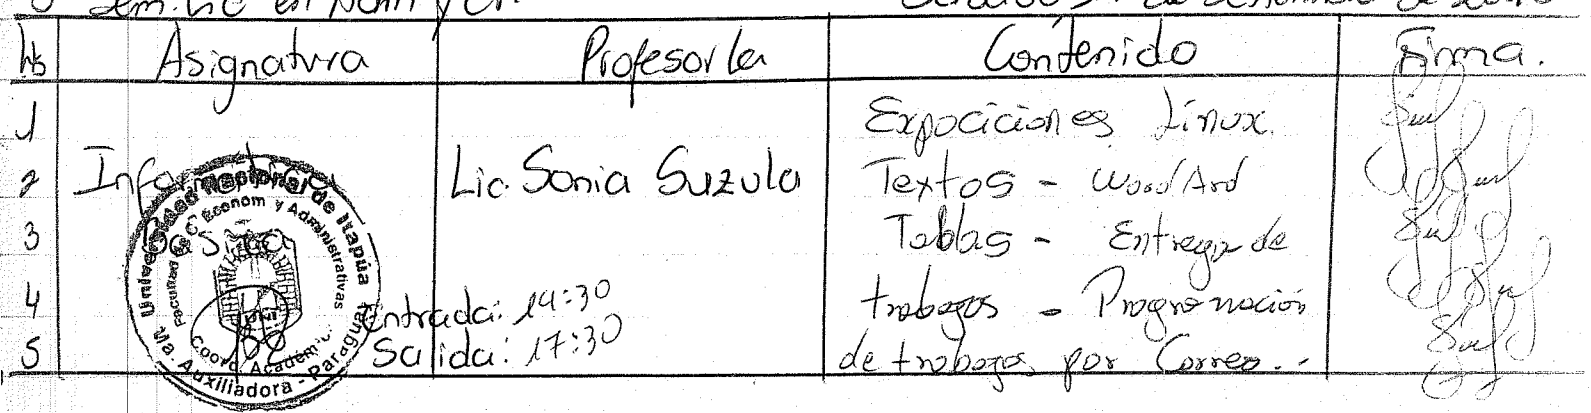 Asignatura Profesor/a Contenido Firma.
1 Expociciones Linux.
2 Lic. Sonia Suzula Textos - WordArd
3 Tablas - Entrega de
4 Entrada: 14:30 trabagos -
5 Salida: 17:30 de trabagos por Correo. -
Universidad Nacional de Itapúa
Facultad de Econom y Administrativas
Coord. Académ
Ma. Auxiliadora - Paraguay